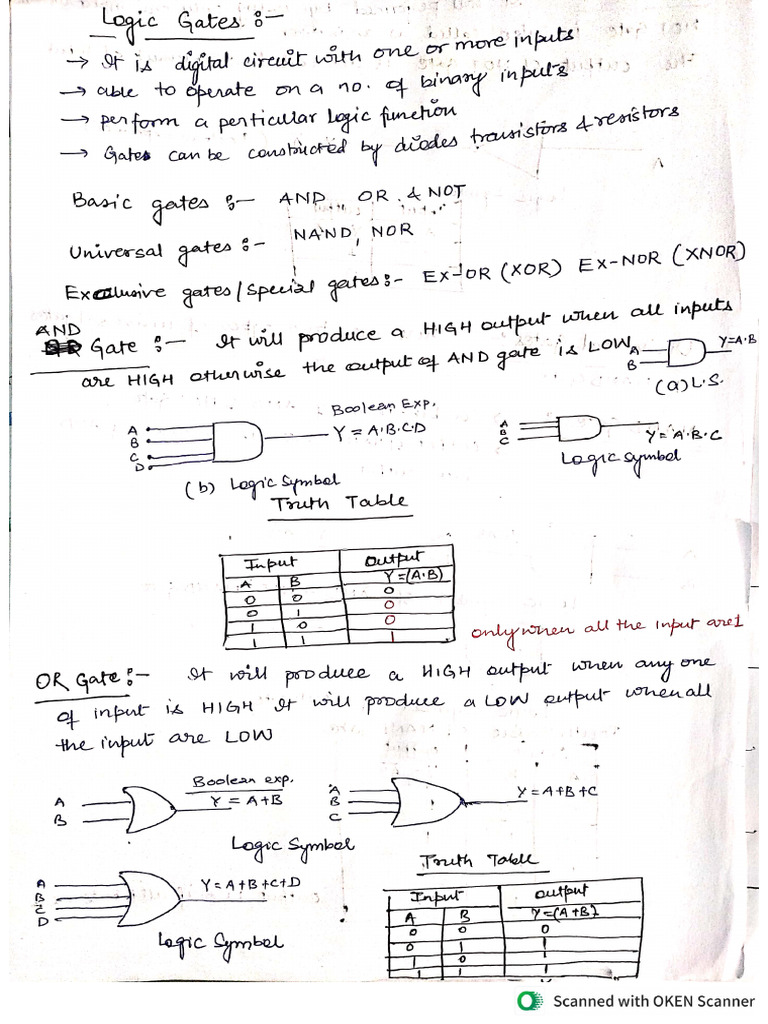 Logic Gates :-
→ It is digital circuit with one or more inputs
→ able to operate on a no. of binary inputs
→ perform a perticular logic function
→ Gates can be constructed by diodes transistors & resistors
Basic gates :- AND, OR & NOT
Universal gates :- NAND, NOR
Exclusive gates / Special gates :- Ex-OR (XOR) EX-NOR (XNOR)
AND
Gate :- It will produce a HIGH output when all inputs
are HIGH otherwise the output of AND gate is LOW
A
B
Y=A·B
(a) L.S.
Boolean Exp.
A
B
C
D
Y = A·B·C·D
(b) Logic Symbol
A
B
C
Y = A·B·C
Logic Symbol
Truth Table
Input Output
A B Y=(A·B)
0 0 0
0 1 0
1 0 0
1 1 1
only when all the input are 1
OR Gate :- It will produce a HIGH output when any one
of input is HIGH It will produce a LOW output when all
the input are LOW
Boolean exp.
A
B
Y = A+B
Logic Symbol
A
B
C
Y = A+B+C
A
B
C
D
Y = A+B+C+D
Logic Symbol
Truth Table
Input output
A B Y=(A+B)
0 0 0
0 1 1
1 0 1
1 1 1
Scanned with OKEN Scanner